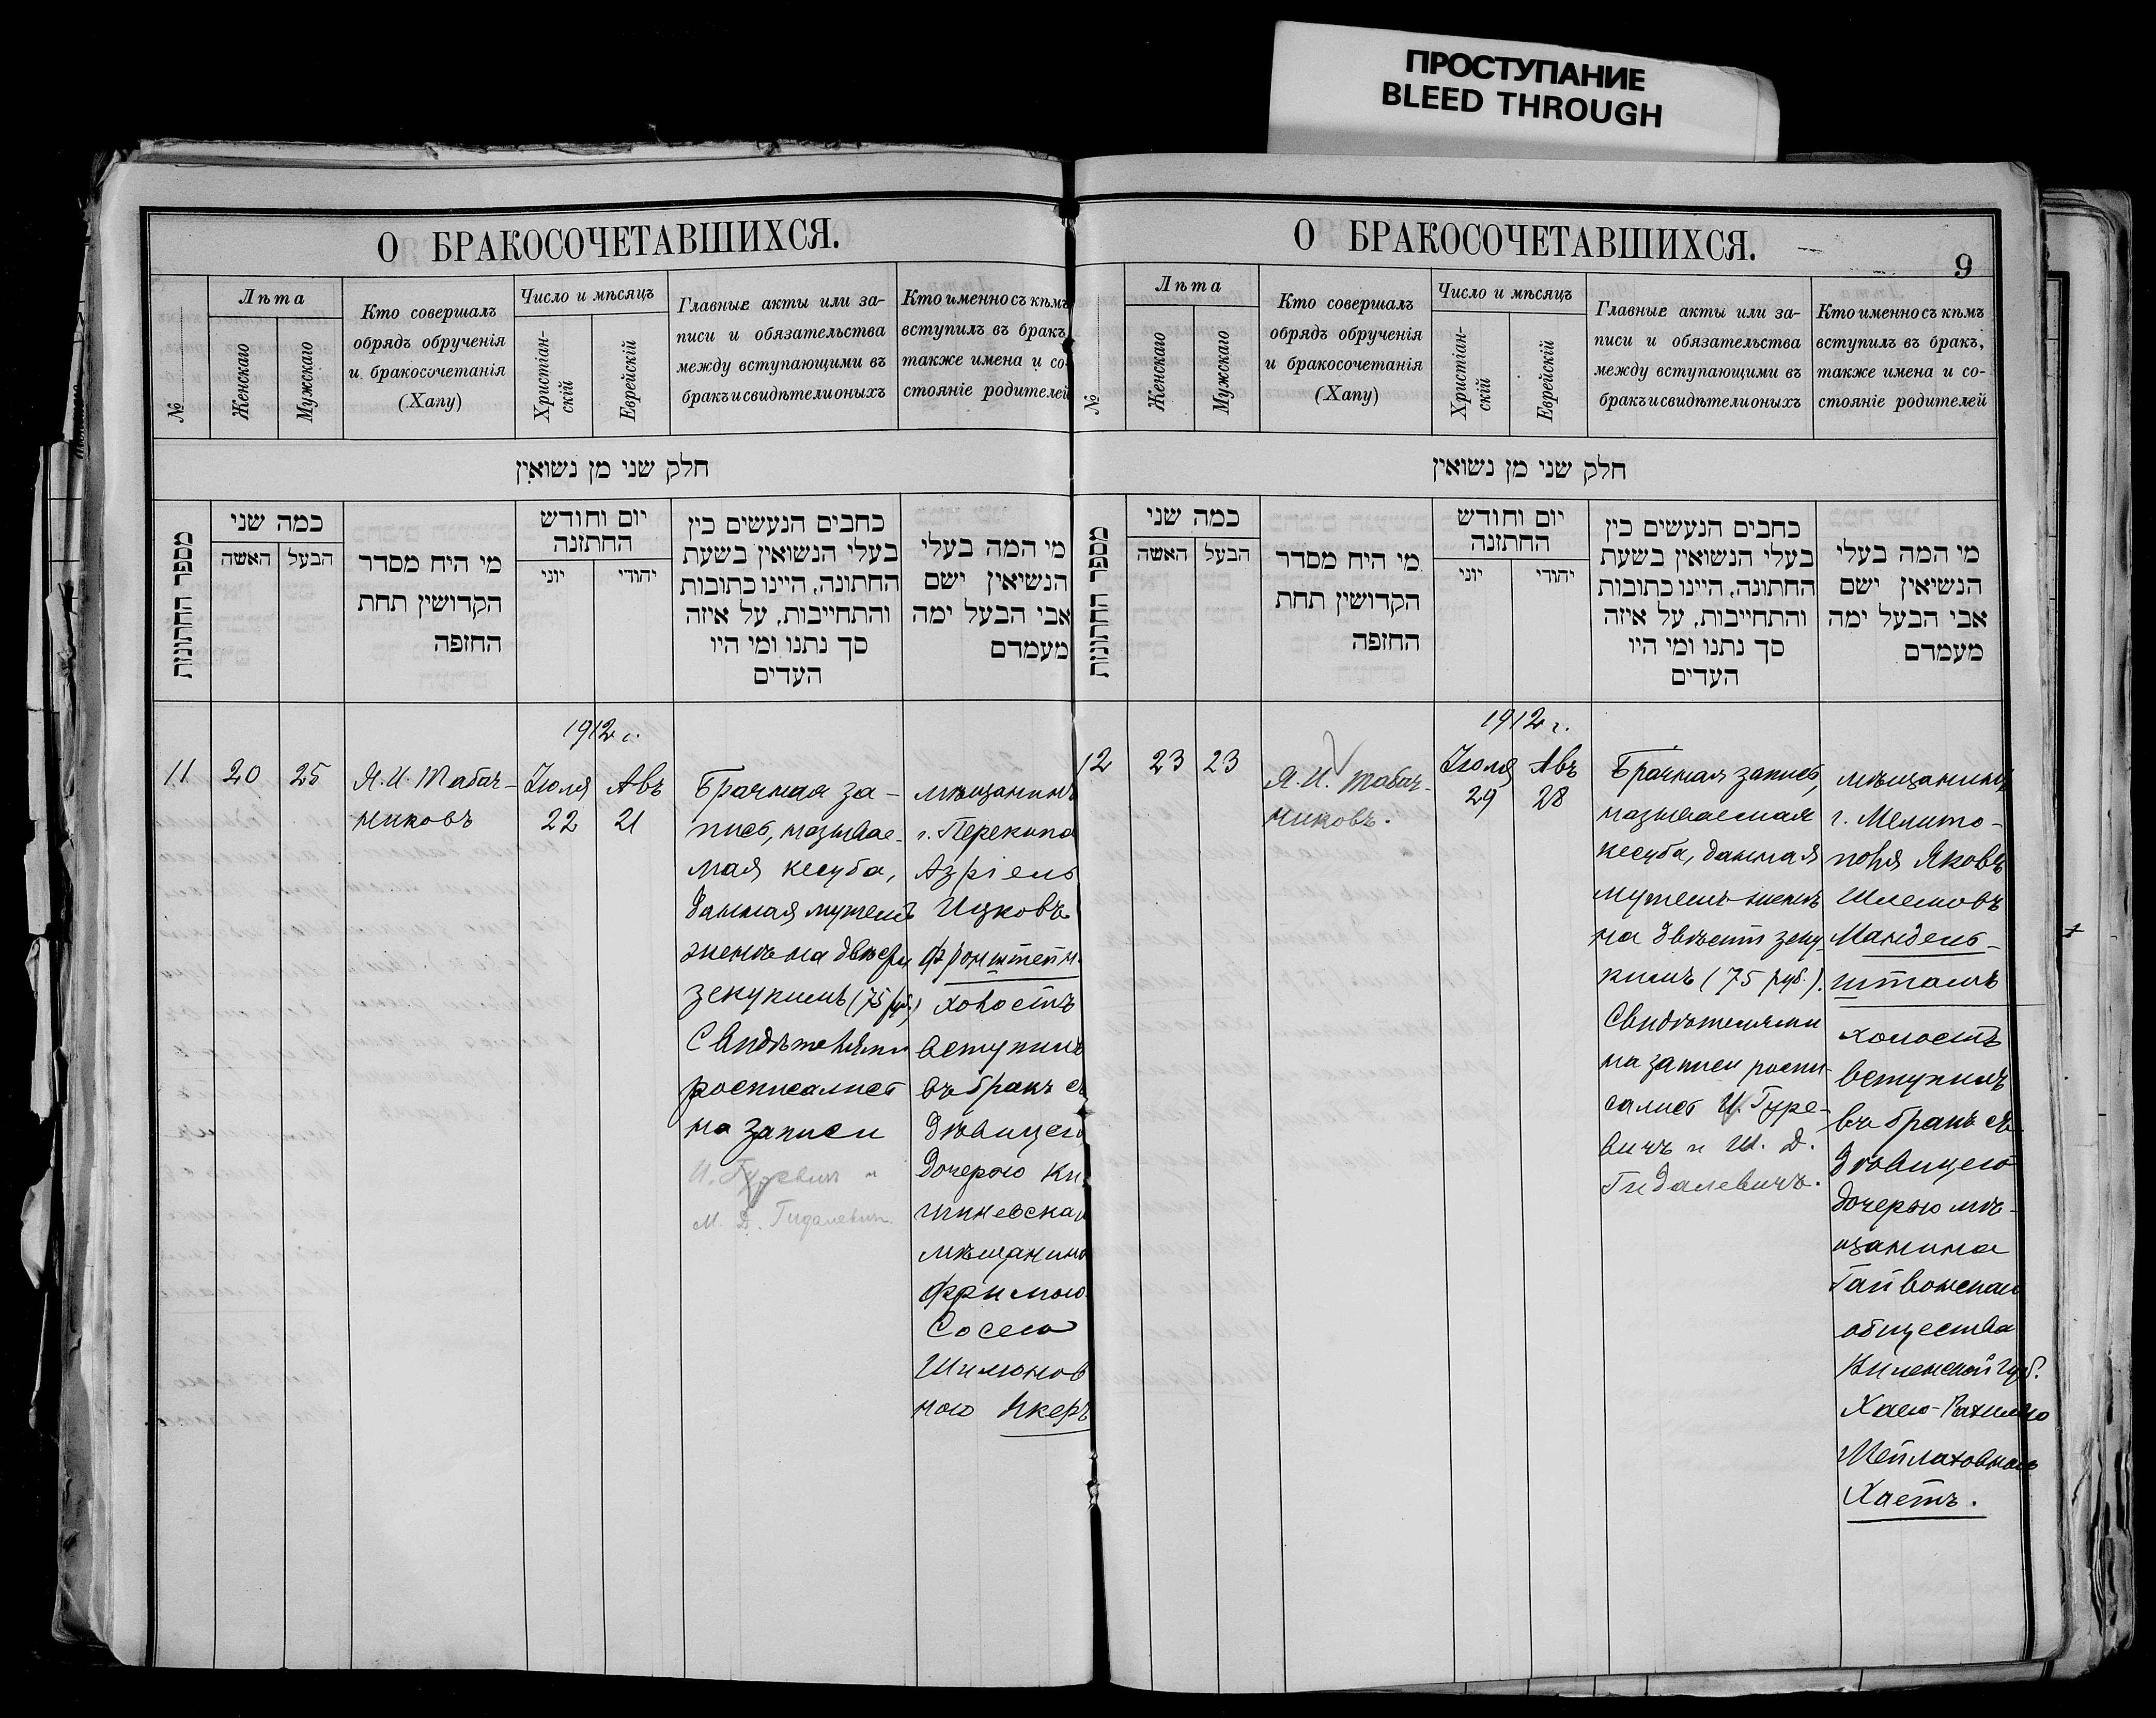 ПРОСТУПАНИЕ
BLEED THROUGH
О БРАКОСОЧЕТАВШИХСЯ.
№
Лѣта
Женскаго
Мужскаго
Кто совершалъ
обрядъ обрученія
и бракосочетанія
(Хапу)
Число и мѣсяцъ
Христіан-
скій
Еврейскій
Главные акты или за-
писи и обязательства
между вступающими въ
бракъ и свидѣтели оныхъ
Кто именно съ кѣмъ
вступилъ въ бракъ,
также имена и со-
стояніе родителей
חלק שני מן נשואין
מספר החתונות
כמה שני
האשה
הבעל
מי היה מסדר
הקדושין תחת
החופה
יום וחודש
החתונה
יוני
יהודי
כתבים הנעשים בין
בעלי הנשואין בשעת
החתונה, היינו כתובות
והתחייבות, על איזה
סך נתנו ומי היו
העדים
מי המה בעלי
הנשיאין ישם
אבי הבעל ימה
מעמדם
1912 г.
11
20
25
Я. И. Табач-
никовъ
Іюля
22
Авъ
21
Брачная за-
пись, называе-
мая кесуба,
данная мужемъ
женѣ на двѣсти
зекукимъ (75 руб.)
Свидѣтелями
росписались
на записи
И. Гуревичъ и
М. Д. Гидалевичъ.
мѣщанинъ
г. Перекопа
Азріель
Ицковъ
Фронштейн
холостъ
вступилъ
въ бракъ съ
дѣвицею
дочерью Ки-
шиневскаго
мѣщанина
Фримою-
Сосею
Шимонов
ною Икеръ
О БРАКОСОЧЕТАВШИХСЯ.
9
№
Лѣта
Женскаго
Мужскаго
Кто совершалъ
обрядъ обрученія
и бракосочетанія
(Хапу)
Число и мѣсяцъ
Христіан-
скій
Еврейскій
Главные акты или за-
писи и обязательства
между вступающими въ
бракъ и свидѣтели оныхъ
Кто именно съ кѣмъ
вступилъ въ бракъ,
также имена и со-
стояніе родителей
חלק שני מן נשואין
מספר החתונות
כמה שני
האשה
הבעל
מי היה מסדר
הקדושין תחת
החופה
יום וחודש
החתונה
יוני
יהודי
כתבים הנעשים בין
בעלי הנשואין בשעת
החתונה, היינו כתובות
והתחייבות, על איזה
סך נתנו ומי היו
העדים
מי המה בעלי
הנשיאין ישם
אבי הבעל ימה
מעמדם
1912 г.
12
23
23
Я. И. Табач-
никовъ.
Іюля
29
Авъ
28
Брачная запись,
называемая
кесуба, данная
мужемъ женѣ
на двѣсти зеку-
кимъ (75 руб.).
Свидѣтелями
на записи роспи-
сались И. Гуре-
вичъ и М. Д.
Гидалевичъ.
мѣщанинъ
г. Мелито-
поля Яковъ
Шлемовъ
Мандель-
штамъ
холостъ
вступилъ
въ бракъ съ
дѣвицею
дочерью мѣ-
щанина
Гайвонскаго
общества
Виленской губ.
Хаею-Рахилью
Шейлаховною
Хастъ.